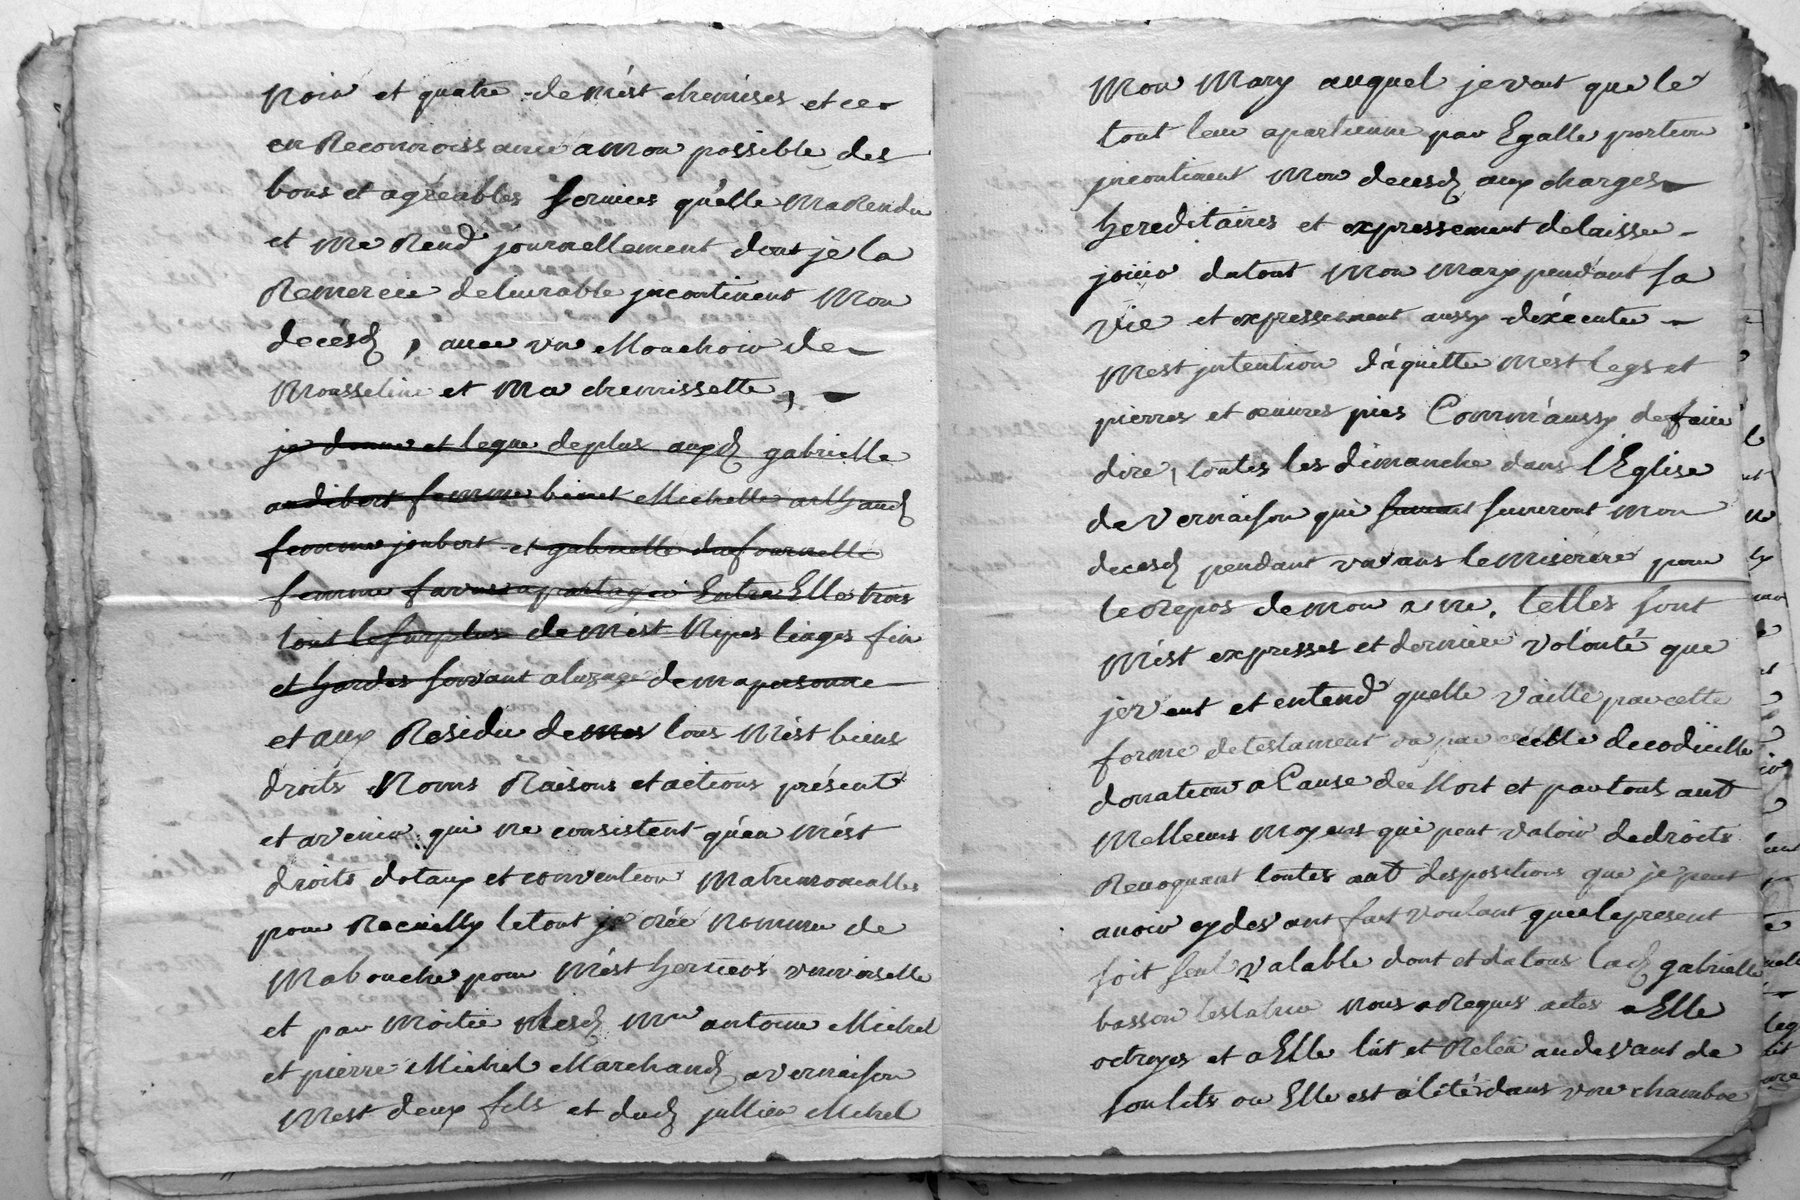 noir et quatre de mést chemises et ce
en Reconnoissance a mon possible des
bons et agréables services qu'elle ma Rendu
et me Rend journellement dont je la
Remercie delivrable jncontinent mon
decésd, avec un Mouchoir de
Mousseline et ma chemissette,
je donne et legue de plus auxd gabrielle
audibert femme binet Michelle arthaud
femme joubert et gabrielle dufournelle
femme favre a partager Entre Elle trois
tout le surplus de mést Nipes linges fin
et hardes servant a luzage de ma personne
et aux Residu de mes tous mést biens
droits Noms Raisons et actions présent
et avenir qui ne consistent qu'en mést
droits dotaux et convention Matrimonialles
pour Recuilly le tout je crée nomme de
Ma bouche pour mést heritiers universelle
et par moitié mesd Mre antoine Michel
et pierre Michel Marchand a vernaison
mest deux fils et dud jullien Michel
Mon Mary auquel je vaut que le
tout leur apartienne par Egalle portion
jncontinent mon decesd aux charges
hereditaires et expressement delaisser
joüir du tout mon mary pendant sa
vie et expressement aussy déxécuter
mest jntention d'aquitter mest legs et
pierres et œuvres pies Comm'aussy de faire
dire, toutes les dimanche dans l'Eglise
de vernaison qui suivront mon
decesd pendant un ans le miserere pour
le Repos de mon ame. telles sont
mést expresses et derniere volonté que
je veut et entend quelle vaille par cette
forme de testament ou par celle de codicille
donation a Cause de Mort et par tous autt
Melleurs moyens qui peut valoir de droits
Revoquant toutes autt dispositions que je peut
avoir cy devant fait voulant que le present
soit seul valable dont et du tous lad gabrielle
basson testatrice nous a Requis actes a Elle
octroyes et a Elle lût et Releu au devant de
son lits ou Elle est alité dans une chambre